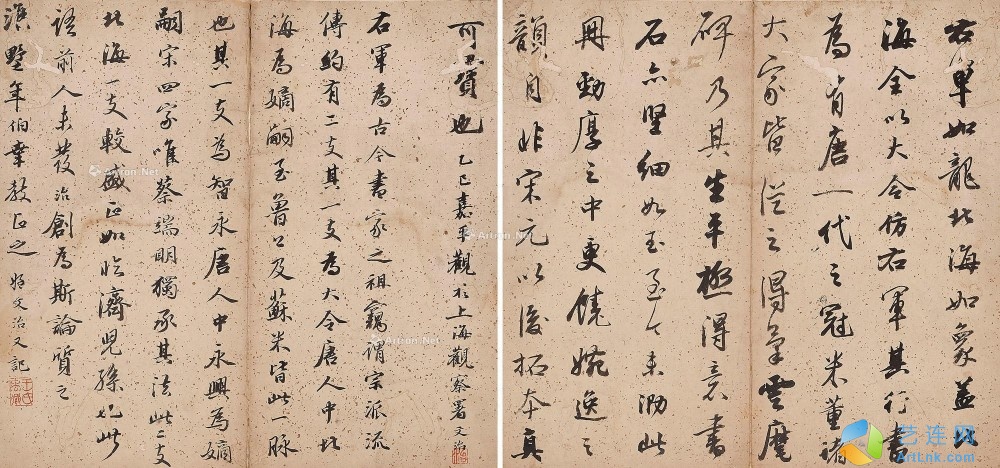 右軍如龍北海如象蓋北
海全以大令仿右軍其行書
為有唐一代之冠米董諸
大家皆從之得筆雲麾
碑乃其生平極得意書
石亦堅細如玉至今未泐此
冊勁厚之中更饒婉逸之
韻自非宋元以後拓本真
可寶也 乙巳嘉平觀於上海觀察署文治
右軍為古今書家之祖竊謂宗派流
傳約有二支其一支為大令唐人中北
海為嫡嗣至魯公及蘇米皆此一脉
也其一支為智永唐人中永興為嫡
嗣宋四家唯蔡端明獨承其法此二支
北海一支較盛正如臨濟兒孫也此
語前人未發治創為斯論質之
墅年伯幸教正之 姪文治又記
艺连网
ArtLnk.com